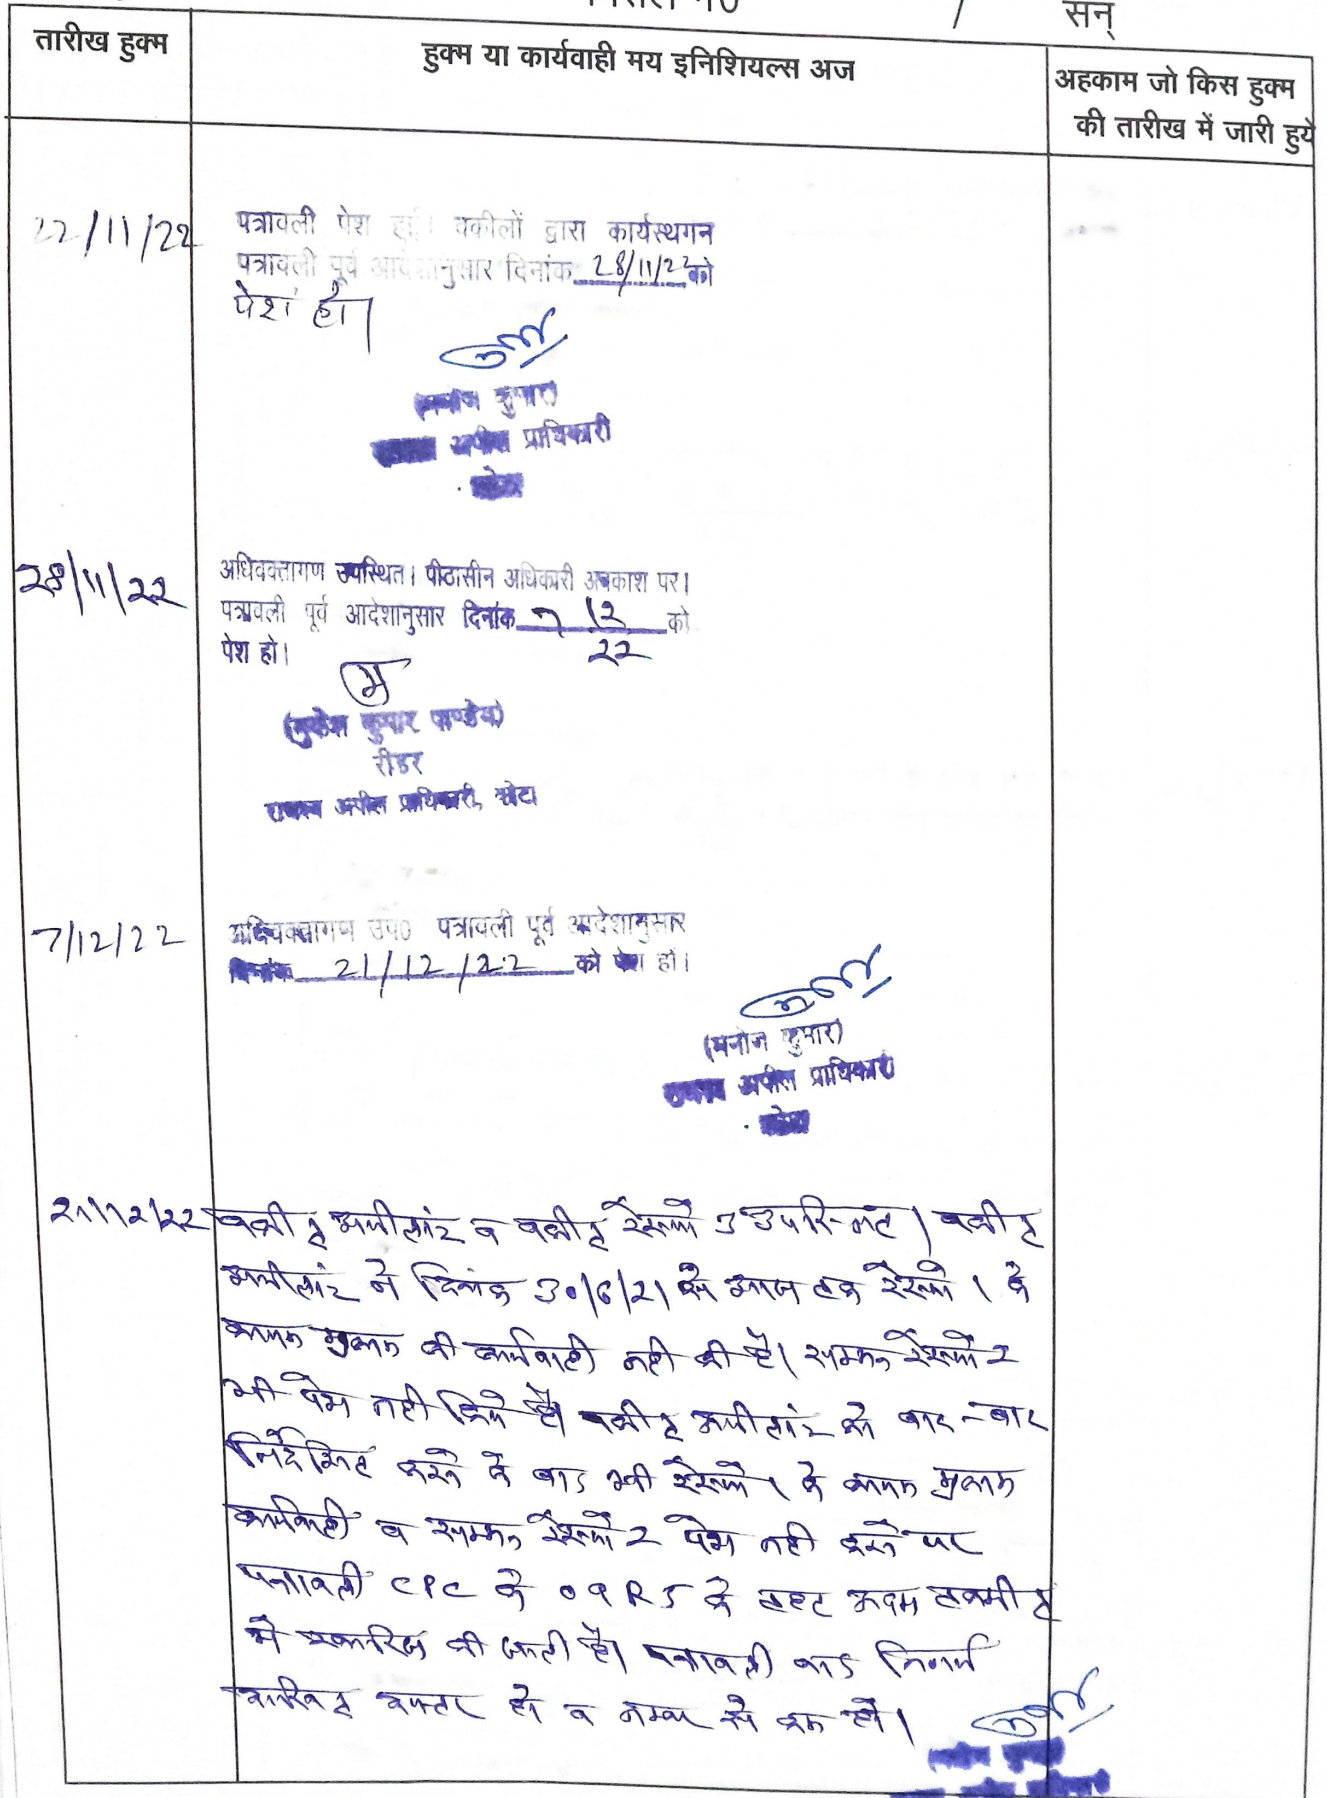 सन्
तारीख हुक्म
हुक्म या कार्यवाही मय इनिशियल्स अज
अहकाम जो किस हुक्म
की तारीख में जारी हुये
22/11/22
पत्रावली पेश हुई। वकीलों द्वारा कार्यस्थगन
पत्रावली पूर्व आदेशानुसार दिनांक 28/11/22 को
पेश हो।
(मनोज कुमार)
अपील प्राधिकारी
कोटा
28/11/22
अधिवक्तागण उपस्थित। पीठासीन अधिकारी अवकाश पर।
पत्रावली पूर्व आदेशानुसार दिनांक 7 12 को
22
पेश हो।
(मुकेश कुमार पाण्डेय)
रीडर
राजस्व अपील प्राधिकारी, कोटा
7/12/22
अधिवक्तागण उप0 पत्रावली पूर्व आदेशानुसार
दिनांक 21/12/22 को पेश हो।
(मनोज कुमार)
राजस्व अपील प्राधिकारी
कोटा
21/12/22
वकील अपीलांट व वकील रेस्पो 3 उपस्थित। वकील
अपीलांट ने दिनांक 30/6/21 से आज तक रेस्पो 1 के
कायम मुकाम की कार्यवाही नही की है। सम्मन रेस्पो 2
भी पेश नही किये है। वकील अपीलांट को बार-बार
निर्देशित करने के बाद भी रेस्पो 1 के कायम मुकाम
कार्यवाही व सम्मन रेस्पो 2 पेश नही करने पर
पत्रावली CPC के O9R5 के तहत अदम तकमील
मे खारिज की जाती है। पत्रावली बाद निर्णय
दाखिल दफ्तर हो व नम्बर से कम हो।